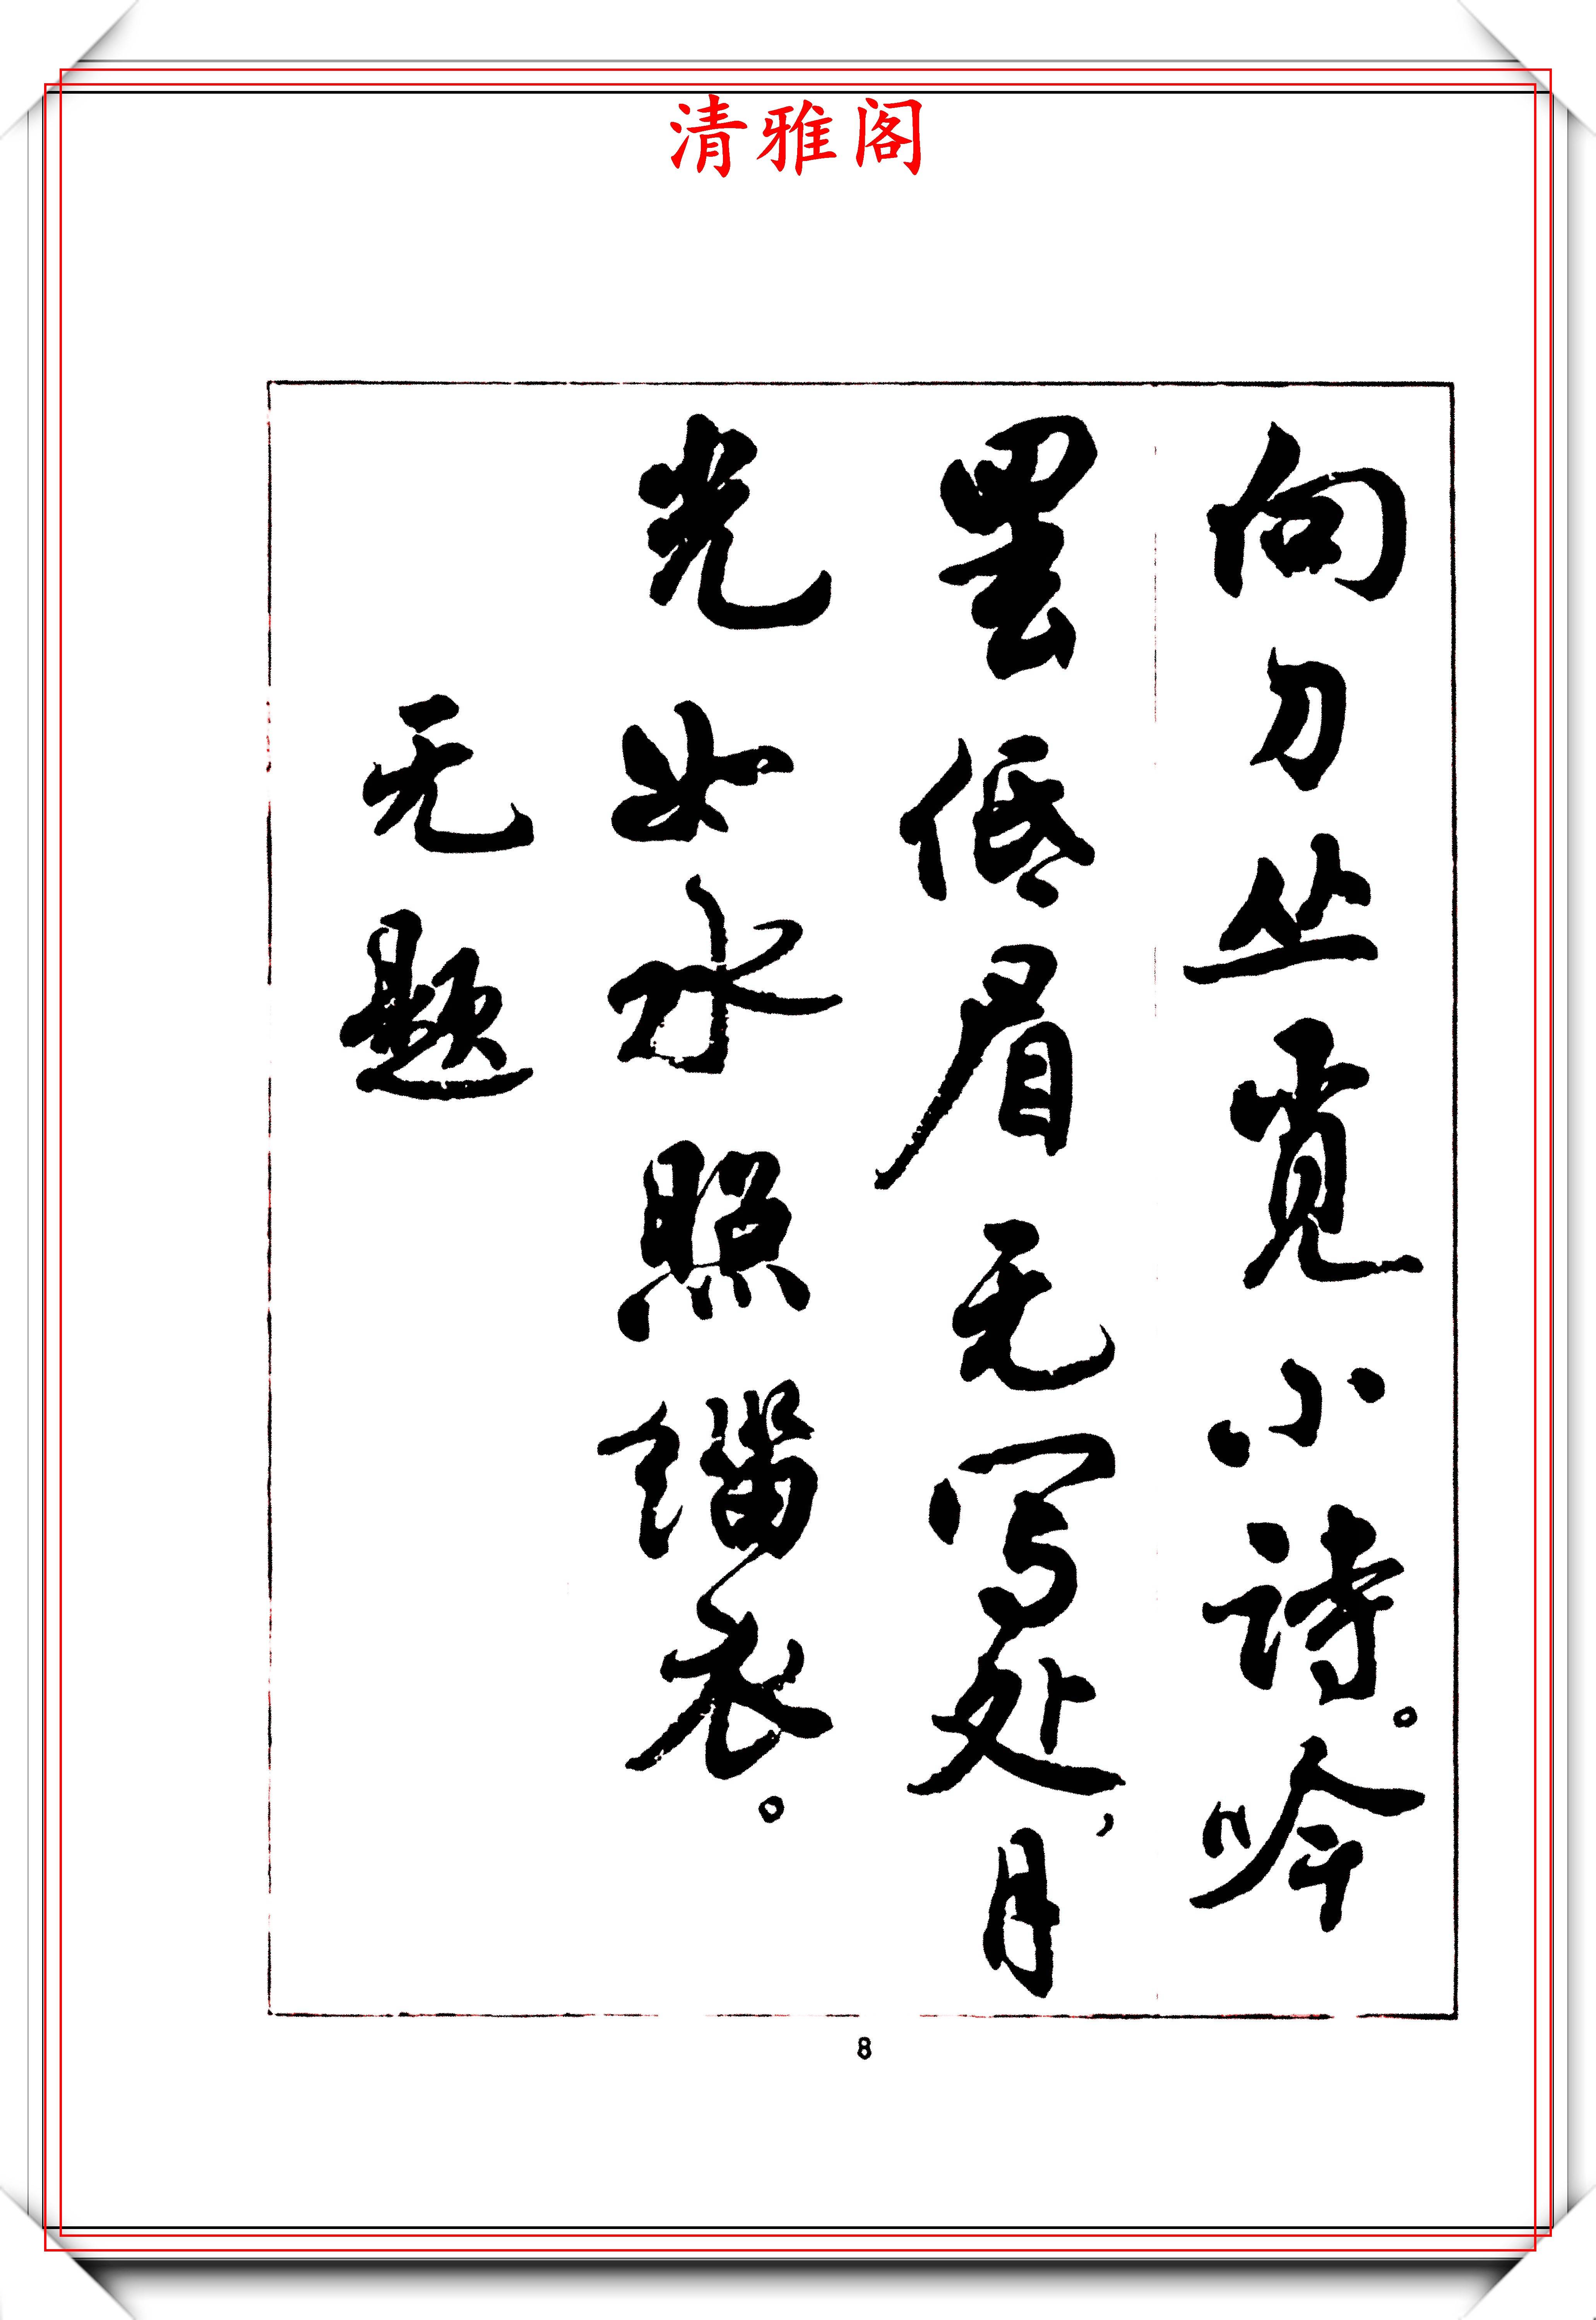 清雅阁
向刀丛觅小诗。吟
罢低眉无写处，月
光如水照缁衣。
无题
8